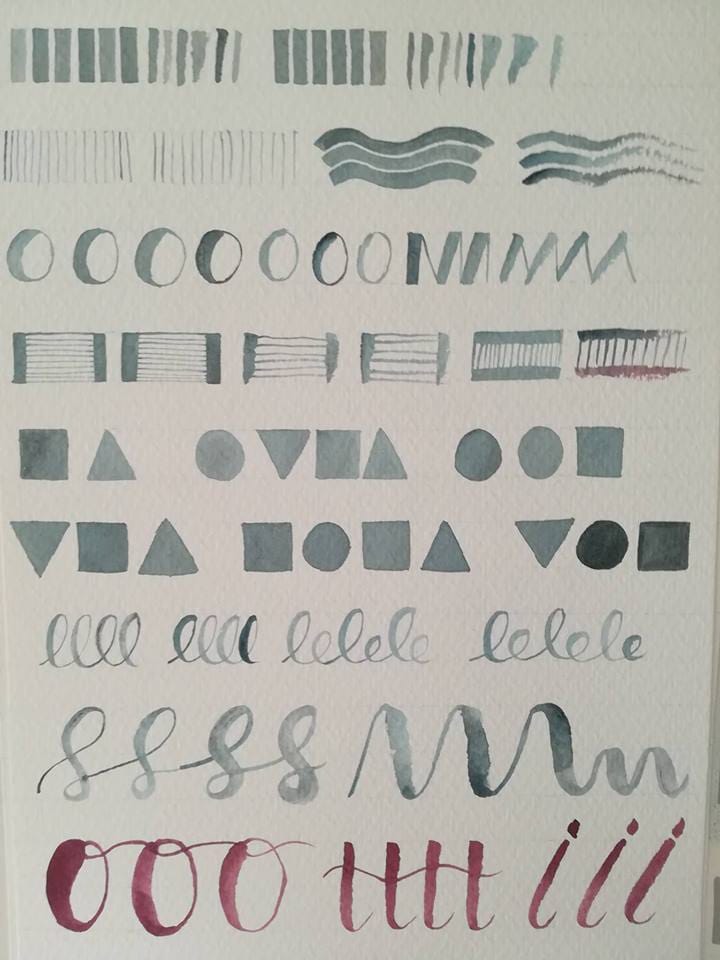 OOOOOOO
llll llll lelele lelele
OOO tttt iii